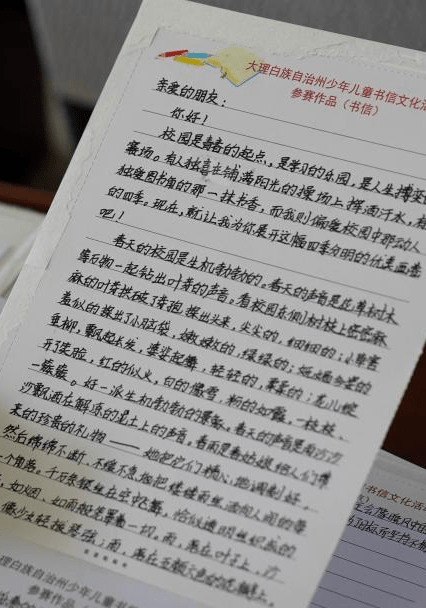 大理白族自治州少年儿童书信文化活
参赛作品（书信）
亲爱的朋友：
你好！
校园是青春的起点，是学习的乐园，是人生搏
赛场。有人独喜在铺满阳光的操场上挥洒汗水，
独爱图书角的那一抹书香，而我则偏爱校园中那动人
的四季。现在，就让我为你展开这幅四季分明的优美画卷
吧！
春天的校园是生机勃勃的。春天的声音是花草树木
等万物一起钻出叶芽的声音。看校园东侧树枝上密密麻
麻的叶芽拱破了芽孢，探出头来，尖尖的，细细的；小草害
羞似的探出了小脑袋，嫩嫩的，绿绿的；
垂柳，飘起长发，婆娑起舞，轻轻的，柔柔的；花儿绽
开了笑脸，红的似火，白的像雪，粉的如霞，一枝枝、
一簇簇。好一派生机勃勃的景象。春天的声音是雨
沙飘洒在解冻的泥土上的声音。春雨是春姑娘给人们带
来的珍贵的礼物——她把它们精心地调制好，
然后绵绵不断、不缓不急地把缕缕雨丝洒向人间的每
一个角落。千万条银丝在空中
如烟、如雨
雨，落在叶子上，
像少女轻拨琴弦；雨，落在五颜六色的花瓣上，
书信文化活
参赛作品（书